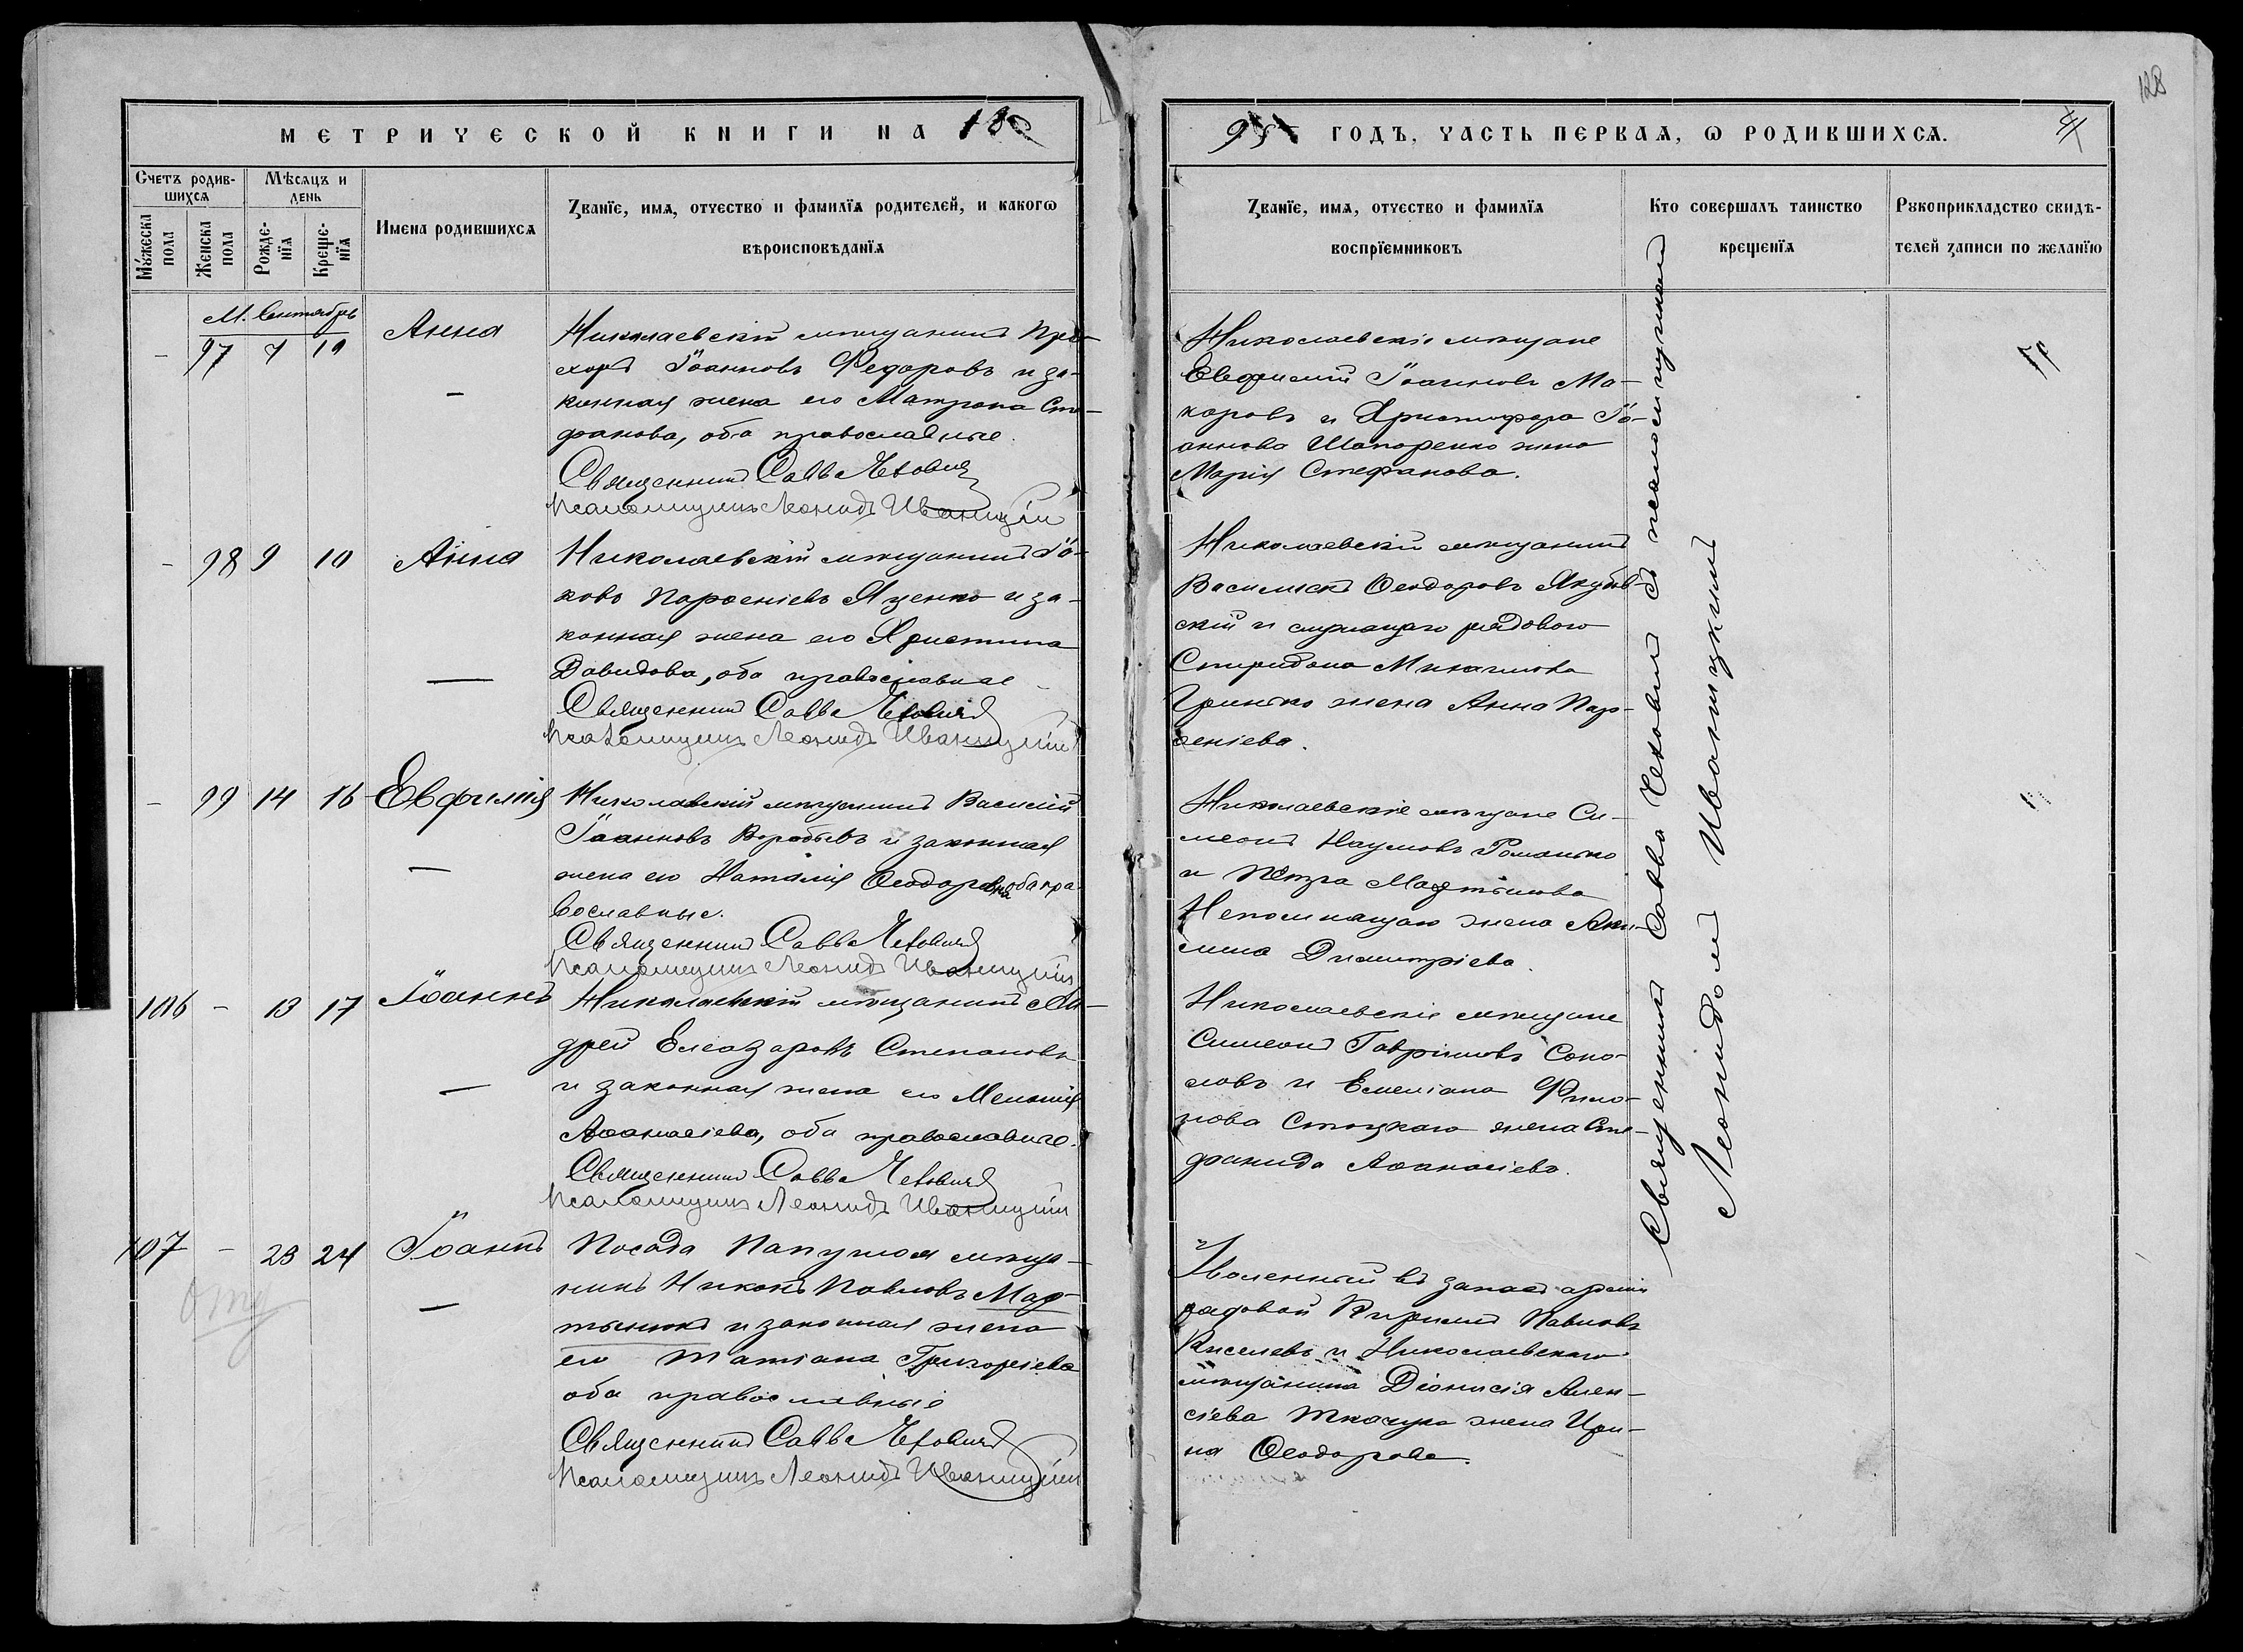 128
МЕТРИЧЕСКОЙ КНИГИ НА 18
95 ГОДЪ, ЧАСТЬ ПЕРВАЯ, Ѡ РОДИВШИХСѦ.
Счетъ родив-
шихсѧ
Мѣсѧцъ и
день
Мꙋжеска
пола
Женска
пола
Рожде-
нїѧ
Креще-
нїѧ
Имена родившихсѧ
Званїе, имѧ, отчество и фамилїѧ родителей, и какогѡ
вѣроисповѣданїѧ
Званїе, имѧ, отчество и фамилїѧ
воспрїемниковъ
Кто совершалъ таинство
крещенїѧ
Рꙋкоприкладство свидѣ-
телей записи по желанїю
М. Сентябрь
– 97 7 10 Анна
Николаевскій мѣщанинъ Про-
хоръ Іоанновъ Федоровъ и за-
конная жена его Матрона Сте-
фанова, оба православные.
Священникъ Савва Чехович
Псаломщикъ Леонидъ Иваницкій
Николаевскіе мѣщане
Евфимій Іоанновъ Ма-
каровъ и Христофора Іо-
аннова Шапоренко жена
Марія Стефанова.
– 98 9 10 Анна
Николаевскій мѣщанинъ Іа-
ковъ Парѳеніевъ Яценко и за-
конная жена его Христина
Давидова, оба православные
Священникъ Савва Чеховичъ
Псаломщикъ Леонидъ Иваницкій
Николаевскій мѣщанинъ
Василискъ Ѳеодоровъ Якубов-
скій и служащаго рядового
Спиридона Михаилова
Гринько жена Анна Пар-
ѳеніева.
– 99 14 16 Евфимія
Николаевскій мѣщанинъ Василій
Іоанновъ Воробьевъ и законная
жена его Наталія Ѳеодорова, оба пра-
вославные.
Священникъ Савва Чеховичъ
Псаломщикъ Леонидъ Иваницкій
Николаевскіе мѣщане Си-
меонъ Наумовъ Романько
и Петра Мартынова
Непомнящаго жена Аки-
лина Димитріева.
106 – 13 17 Іоаннъ
Николаевскій мѣщанинъ Ан-
дрей Елеазаровъ Степановъ
и законная жена его Меланія
Аѳанасіева, оба православные.
Священникъ Савва Чеховичъ
Псаломщикъ Леонидъ Иваницкій
Николаевскіе мѣщане
Симеонъ Гавріиловъ Соко-
ловъ и Емеліана Фило-
нова Стоцкаго жена Сте-
фанида Аѳанасіева.
107 – 23 24 Іоаннъ
Посада Папушоя мѣща-
нинъ Никонъ Павловъ Мар-
тынюкъ и законная жена
его Татіана Григоріева
оба православные
Священникъ Савва Чеховичъ
Псаломщикъ Леонидъ Иваницкій
Уволенный въ запасъ арміи
рядовой Кириллъ Павловъ
Киселевъ и Николаевскаго
мѣщанина Діонисія Алек-
сіева Ткачука жена Ири-
на Ѳеодорова.
Священникъ Савва Чеховичъ съ псаломщикомъ
Леонидомъ Иваницкимъ